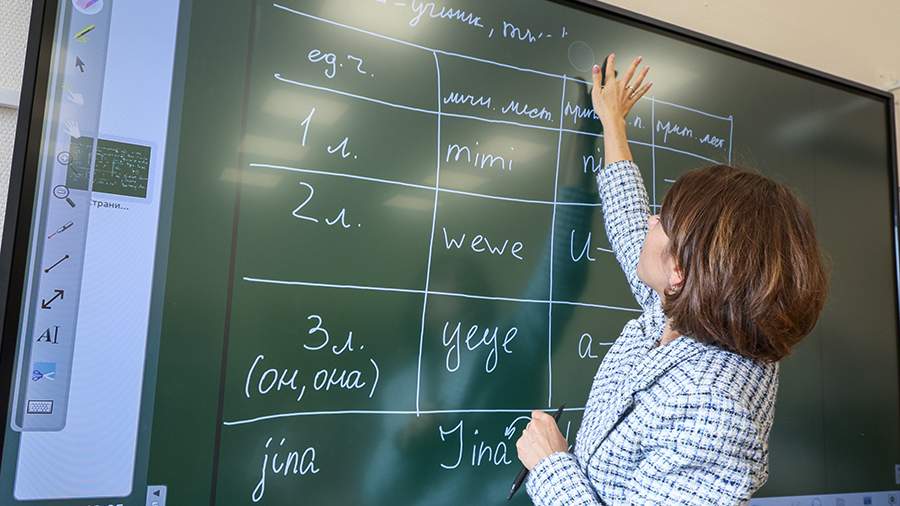 -ученик,
ед.ч. личн. мест. прит. мест.
1 л. mimi ni
2 л. wewe u-
3 л. yeye a-
(он, она)
jina Jina
страни...
AI